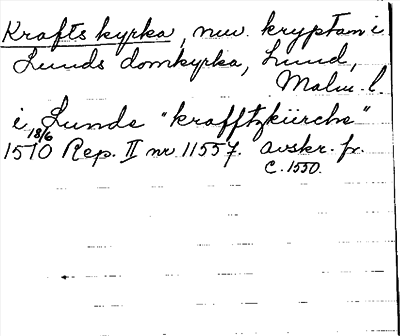 Krafts kyrka, nuv. kryptan i
Lunds domkyrka, Lund,
Malm. l.
i Lunde "krafftzkiirche"
18/6
1510 Rep. II nr 11557. Avskr. fr.
c. 1550.